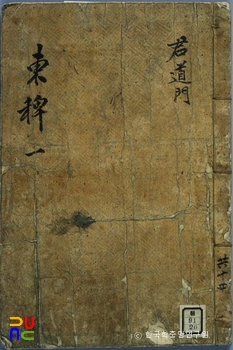 君道門
東稗 一
共十四
ⓒ 한국학중앙연구원